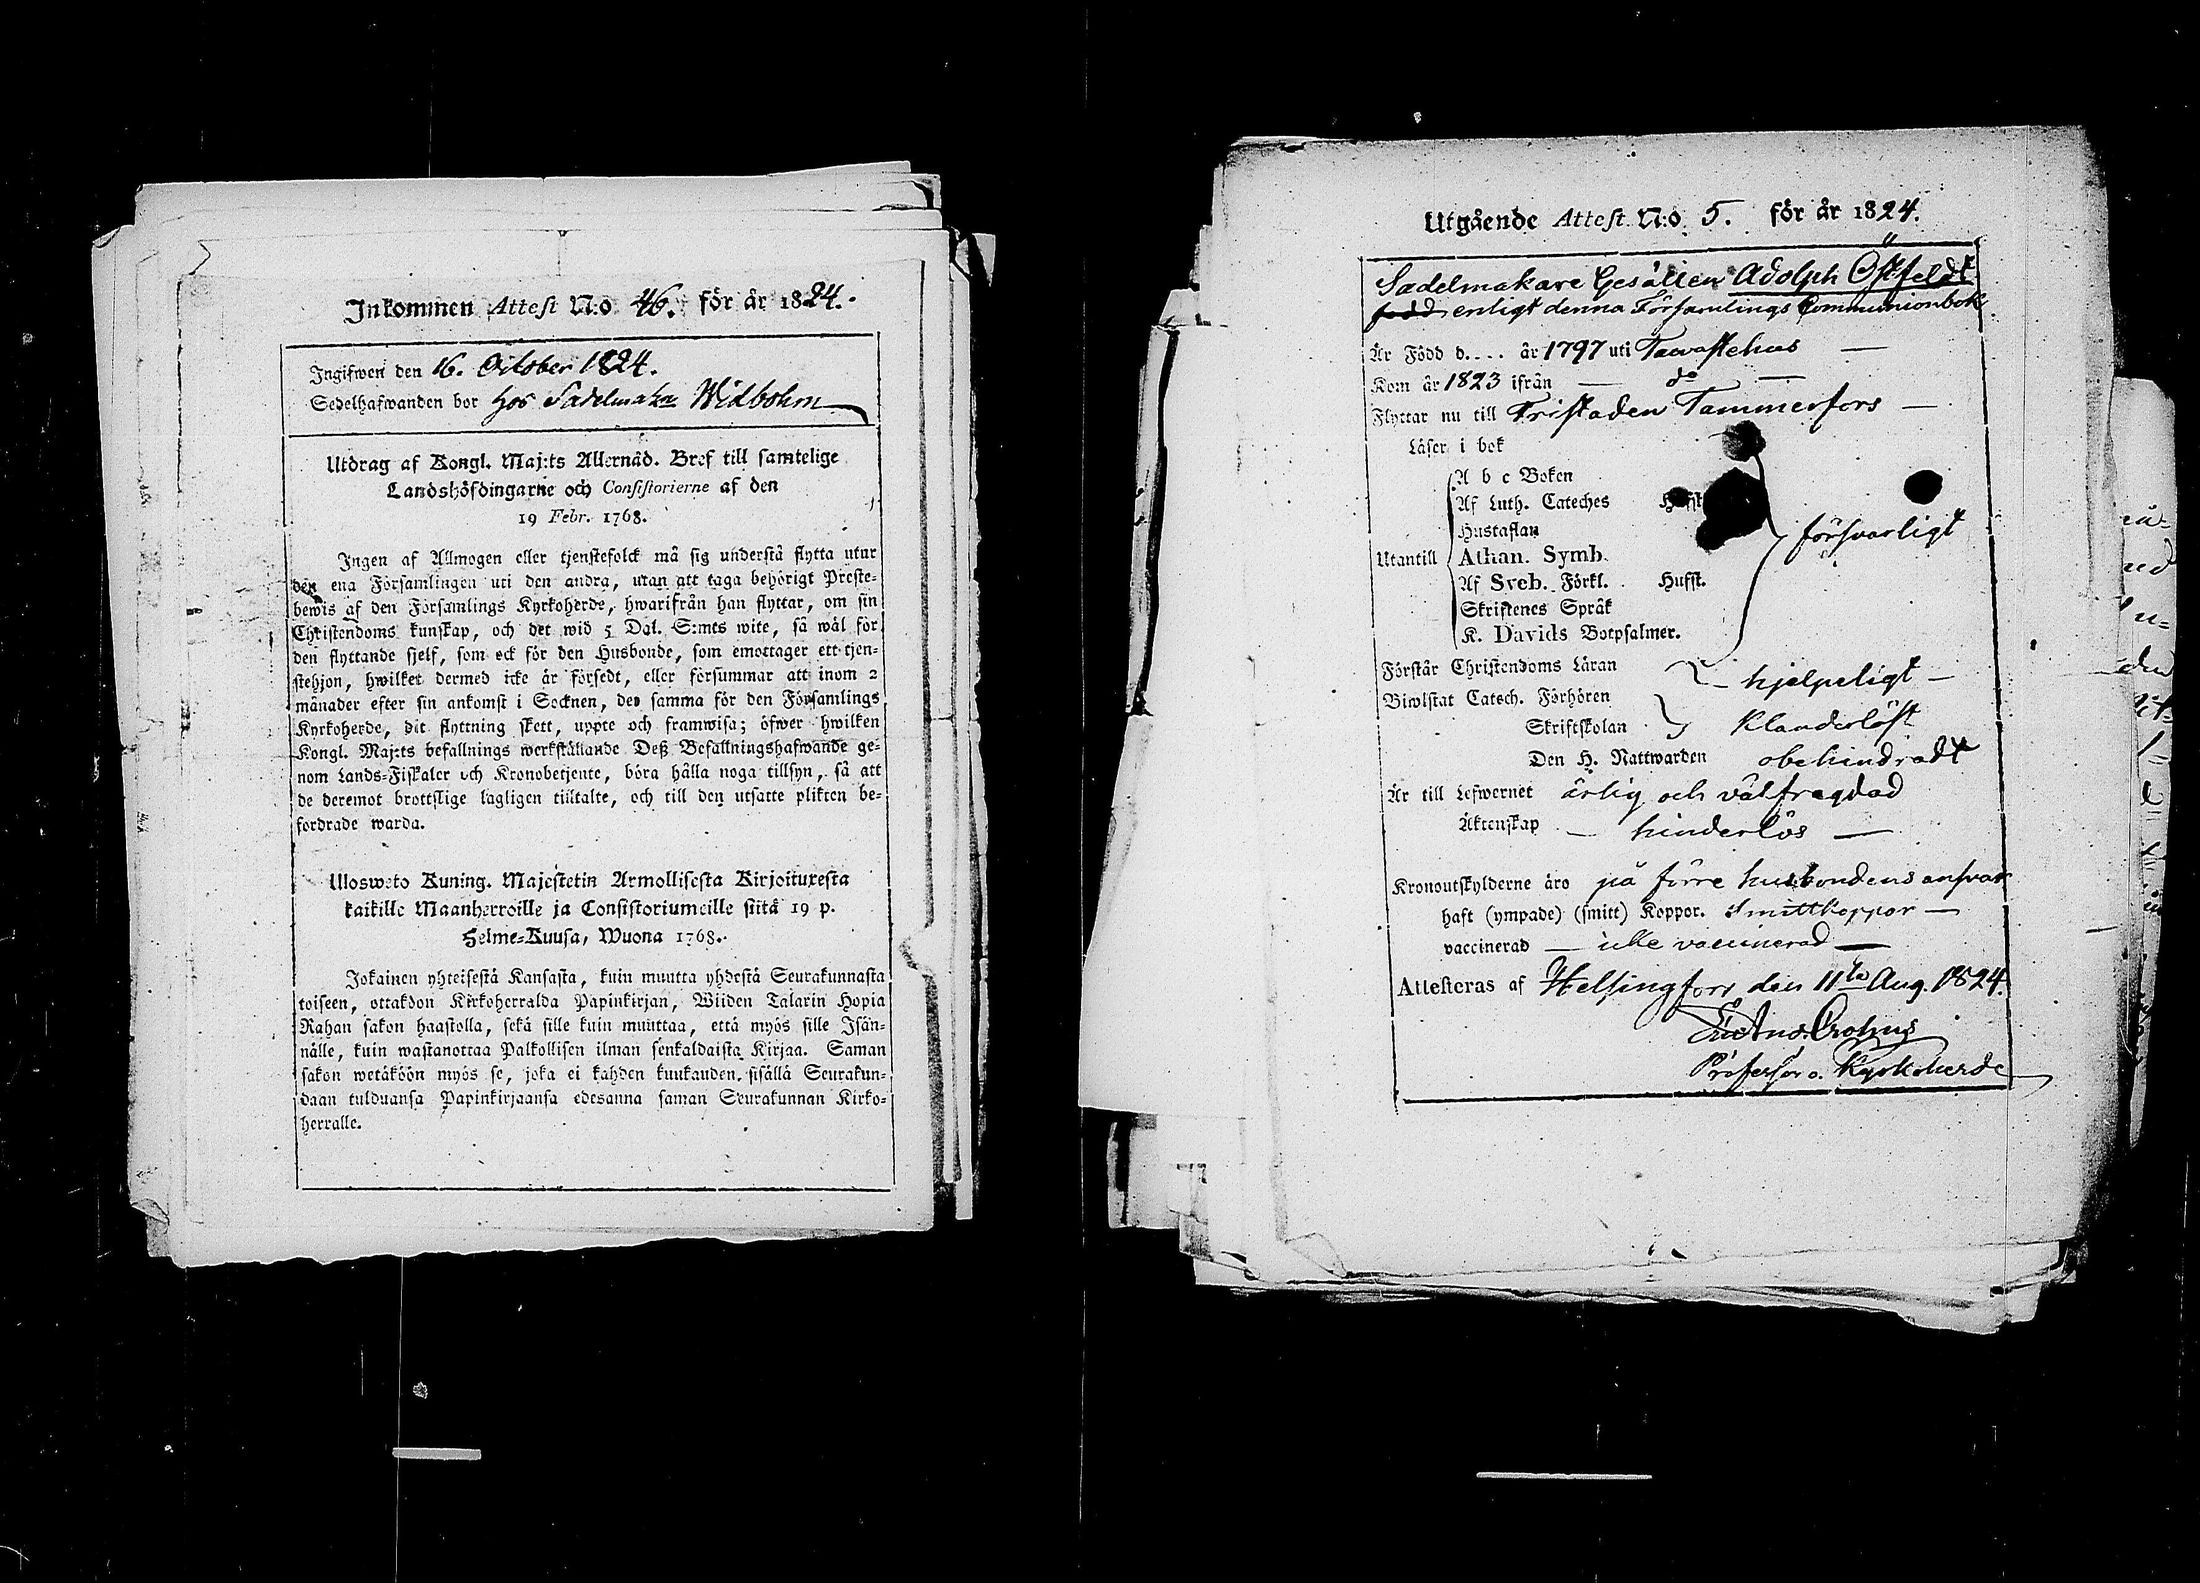 Inkommen Attest N:o 46. för år 1824.
Ingifwen den 16. October 1824.
Sedelhafwanden bor hos Sadelmakar Widbohm
Utdrag af Kongl. Maj:ts Allernåd. Bref till samtelige
Landshöfdingarne och Consistorierne af den
19 Febr. 1768.
Ingen af Allmogen eller tjenstefolck må sig understå flytta utur
den ena Församlingen uti den andra, utan att taga behörigt Preste-
bewis af den Församlings Kyrkoherde, hwarifrån han flyttar, om sin
Christendoms kunskap, och det wid 5 Dal. S:mts wite, så wäl för
den flyttande sjelf, som ock för den Husbonde, som emottager ett tjen-
stehjon, hwilket dermed icke är försedt, eller försummar att inom 2
månader efter sin ankomst i Socknen, det samma för den Församlings
Kyrkoherde, dit flyttning skett, uppte och framwisa; öfwer hwilken
Kongl. Maj:ts befallnings werkställande Deß Befallningshafwande ge-
nom Lands-Fiskaler och Kronobetjente, böra hålla noga tillsyn, så att
de deremot brottslige lagligen tilltalte, och till den utsatte plikten be-
fordrade warda.
Ulosweto Kuning. Majestetin Armollisesta Kirjoituxesta
kaikille Maanherroille ja Consistoriumeille siitä 19 p.
Helme-Kuusa, Wuona 1768.
Jokainen yhteisestä Kansasta, kuin muutta yhdestä Seurakunnasta
toiseen, ottakoon Kirkoherralda Papinkirjan, Wiiden Talarin Hopia
Rahan sakon haastolla, sekä sille kuin muuttaa, että myös sille Isän-
nälle, kuin wastanottaa Palkollisen ilman senkaldaista Kirjaa. Saman
sakon wetäköön myös se, joka ei kahden kuukauden sisällä Seurakun-
daan tulduansa Papinkirjaansa edesanna saman Seurakunnan Kirko-
herralle.
Utgående Attest N:o 5. för år 1824.
Sadelmakare Gesällen Adolph Östfeldt
född enligt denna Församlings Communionbok
Är Född d.... år 1797 uti Tavastehus —
Kom år 1823 ifrån — do —
Flyttar nu till Fristaden Tammerfors —
Läser i bok
A b c Boken
Af Luth. Cateches Hufst
Hustaflan
Utantill Athan. Symb. försvarligt
Af Sveb. Förkl. Hufst.
Skriftenes Språk
K. Davids Botpsalmer.
Förstår Christendoms Läran — hjelpeligt —
Biwistat Catech. Förhören
Skriftskolan Klanderlöst
Den H. Nattwarden obehindradt
Är till Lefwernet ärlig och välfrägdad
Äktenskap — hinderlös —
Kronoutskylderne äro på förre husbondens ansvar
haft (ympade) (smitt) Koppor. Smittkoppor —
vaccinerad — icke vaccinerad —
Attesteras af Helsingfors den 11te Aug. 1824.
Professor o. Kyrkoherde